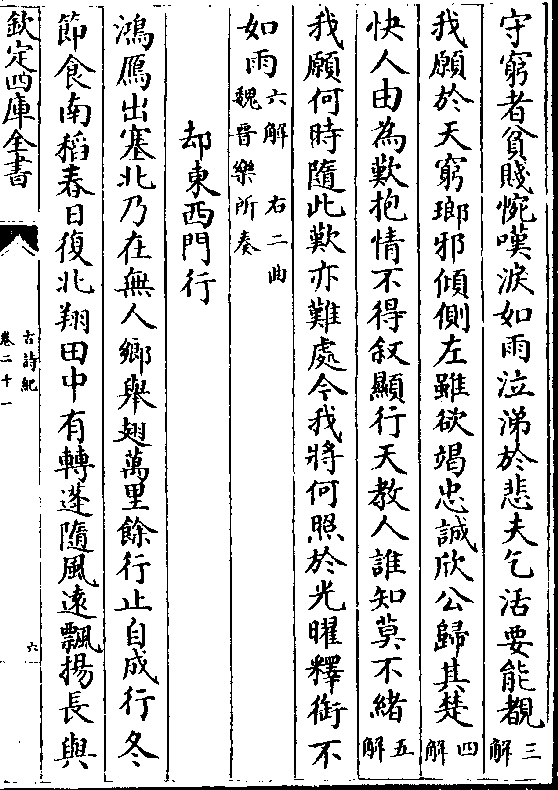 守窮者貧賤惋嘆淚如雨泣涕於悲夫乞活要能覩三解
我願於天窮瑯邪傾側左雖欲竭忠誠欣公歸其楚四解
快人由為歎抱情不得叙顯行天教人誰知莫不緒五解
我願何時隨此歎亦難處今我將何照於光曜釋銜不
如雨六解 右二曲魏晉樂所奏
却東西門行
鴻鴈出塞北乃在無人鄉舉翅萬里餘行止自成行冬
節食南稻春日復北翔田中有轉蓬隨風遠飄揚長與
欽定四庫全書
古詩紀
卷二十一
六